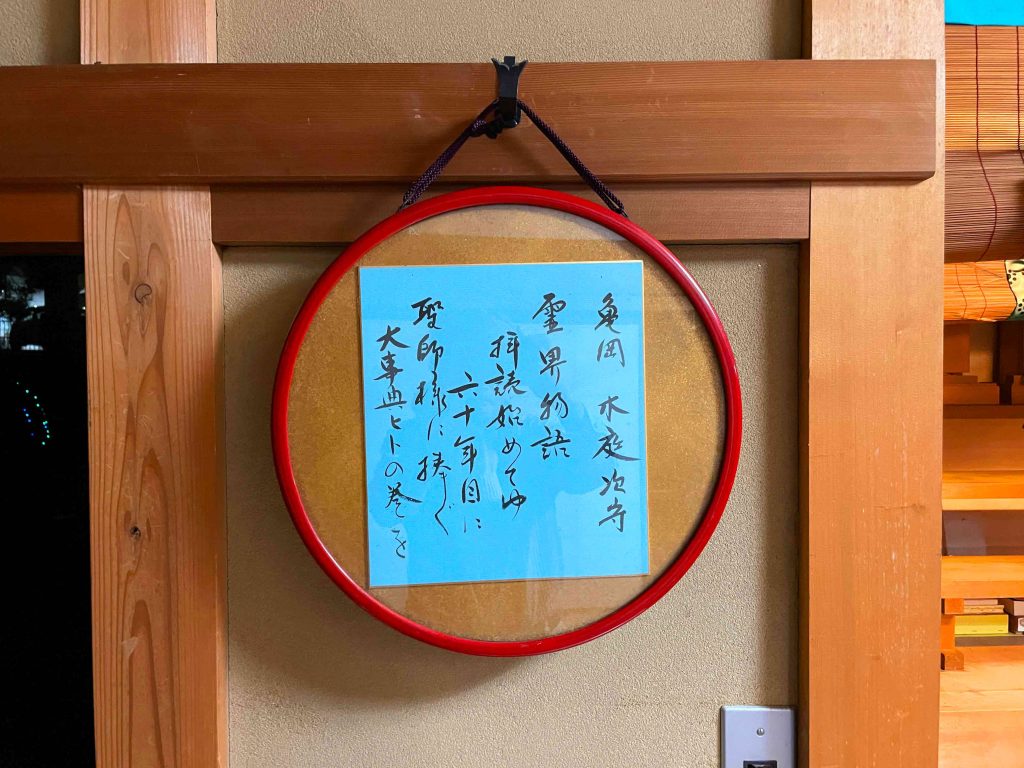 亀岡 木庭次守
霊界物語
拝読始めてゆ
六十年目に
聖師様に捧ぐ
大事典ヒトの巻を